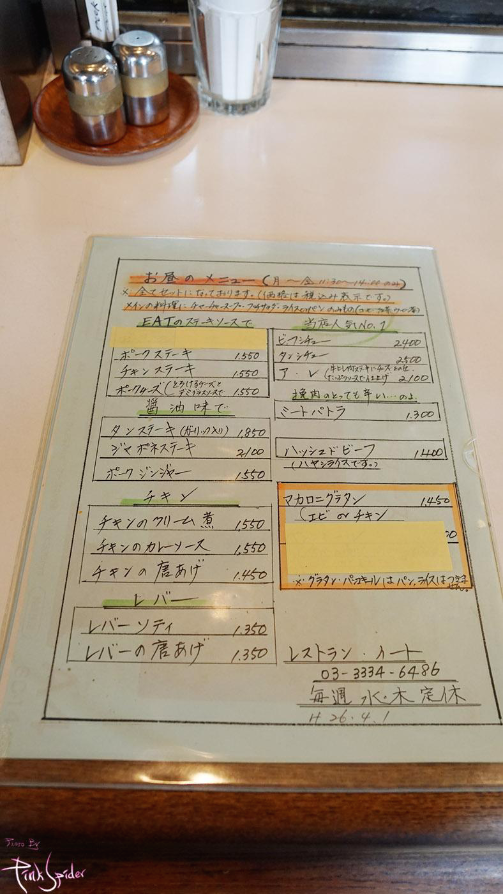 お昼のメニュー(月~金 11:30~14:00
※全てセットになっております。(価格は税込み表示です。)
メインの料理に
EATのステーキソースで
ポークステーキ 1,550
チキンステーキ 1,550
ポークチーズ(とろけるチーズと 1,550
醤油味で
タンステーキ(ガーリック入り) 1,850
ジャポネステーキ 2,100
ポークジンジャー 1,550
チキン
チキンのクリーム煮 1,550
チキンのカレーソース 1,550
チキンの唐あげ 1,450
レバー
レバーソティ 1,350
レバーの唐あげ 1,350
当店人気No.1
ビーフシチュー 2,400
タンシチュー 2,500
ア・ラ 2,100
挽肉のとっても辛い…のよ
ミートバトラ 1,300
ハッシュドビーフ 1,400
(ハヤシライスです。)
マカロニグラタン 1,450
(エビ or チキン
00
※グラタン・パコキールはパン、ライスは
レストラン・イート
03-3334-6486
毎週 水・木 定休
H 26.4.1
Photo By
PinkSpider